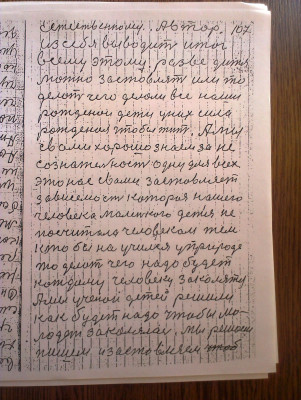 естественному. Автор. 167
из себя выводит итог
всему этому, разве дитя
можно заставлять или то
делать чего делали все наши
рождение дети у них сила
рождения чтобы жить. А мы
с вами хорошо знаем за не
сознательность одну для всех
это нас с вами заставляет
зависимость которая нашего
человека маленького дитя не
посчитала человеком тем
кто бы научился у природе
то делать чего надо будет
каждому человеку закалять
А мы ученой детей решили
как будет надо чтобы мо-
лодеж закалялась. Мы решили
пишем и заставляем